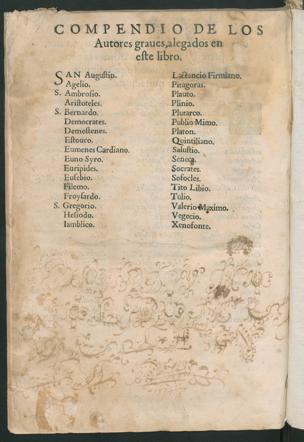 COMPENDIO DE LOS
Autores graues, alegados en
este libro.
SAN Augustin.
Agelio.
S. Ambrosio.
Aristoteles.
S. Bernardo.
Democrates.
Demostenes.
Estouco.
Eumenes Cardiano.
Euno Syro.
Euripides.
Eusebio.
Filemo.
Froysardo.
S. Gregorio.
Hesiodo.
Iamblico.
Lactancio Firmiano.
Pitagoras.
Plauto.
Plinio.
Plutarco.
Publio Mimo.
Platon.
Quintiliano.
Salustio.
Seneca.
Socrates.
Sofocles.
Tito Libio.
Tulio.
Valerio Maximo.
Vegecio.
Xenofonte.